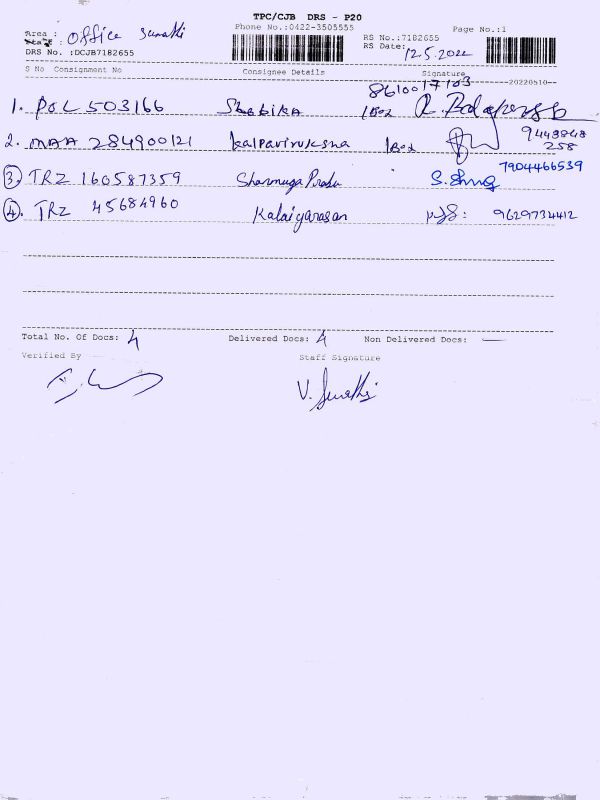 TPC/CJB DRS - P20
Area : Office Sumathi
Phone No.:0422-3505555
Page No.:1
Staff :
RS No.:7182655
RS Date: 12.5.2022
DRS No. :DCJB7182655
S No Consignment No Consignee Details Signature --20220510--
8610017103
1. POL 503166 Shobika 1 Box
2. MAA 284900121 kalpaviruksha 1 Box 9443848 258
3. TRZ 160587359 Shanmuga Prabu S. Shmg 7904466539
4. TRZ 45684960 Kalaiyarasan 9629734412
Total No. Of Docs: 4 Delivered Docs: 4 Non Delivered Docs: —
Verified By Staff Signature
V. Sumathi